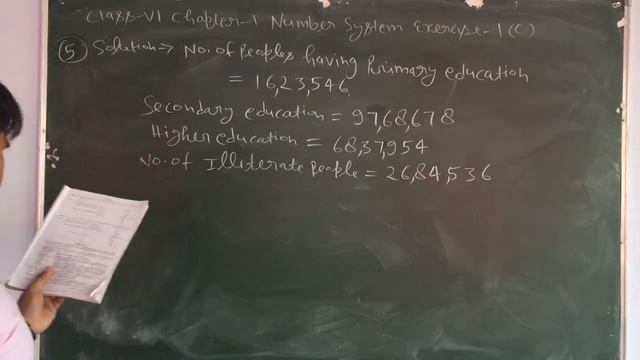 Class-VI Chapter-1 Number System Exercise-1(C)
(5) Solution→ No. of Peoples having Primary education
= 16,23,546
Secondary education = 97,68,678
Higher education = 68,37,954
No. of Illiterate People = 26,84,536